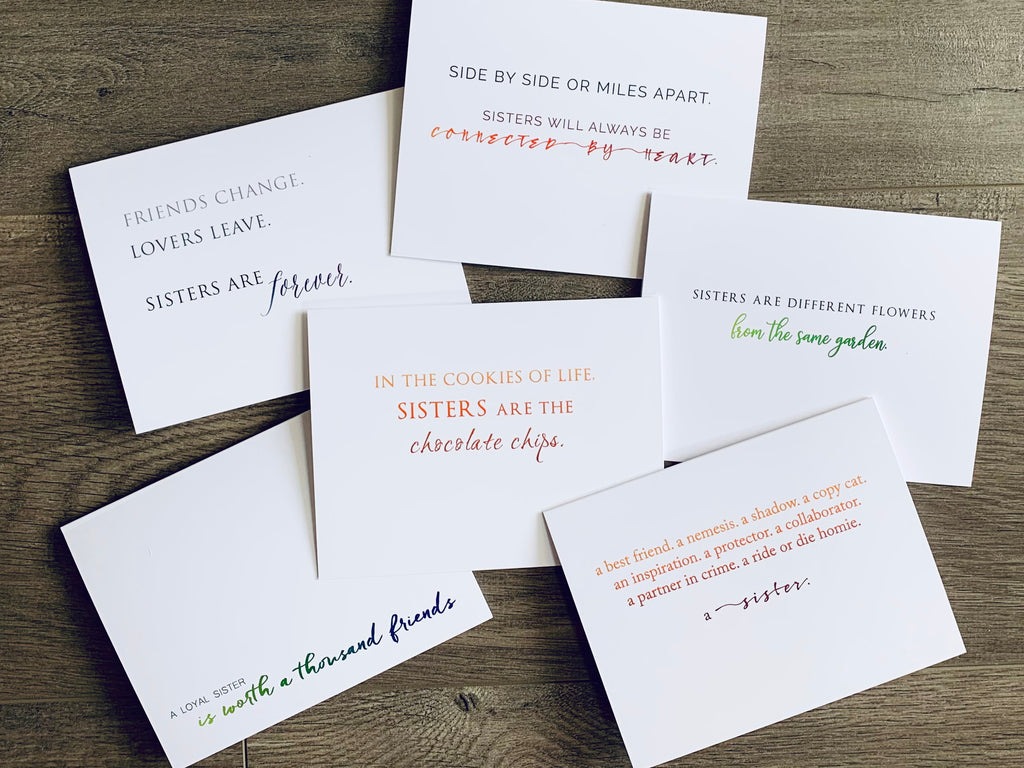 SIDE BY SIDE OR MILES APART.
SISTERS WILL ALWAYS BE
CONNECTED BY HEART.
FRIENDS CHANGE.
LOVERS LEAVE.
SISTERS ARE forever.
SISTERS ARE DIFFERENT FLOWERS
from the same garden.
IN THE COOKIES OF LIFE,
SISTERS ARE THE
chocolate chips.
a best friend. a nemesis. a shadow. a copy cat.
an inspiration. a protector. a collaborator.
a partner in crime. a ride or die homie.
a sister.
A LOYAL SISTER
is worth a thousand friends